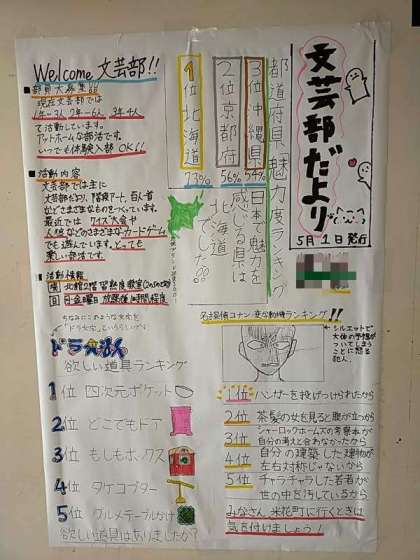 文芸部だより
5月1日発行
Welcome 文芸部!!
部員大募集
現在文芸部では
1年-3人 2年-6人 3年4人
で活動しています。
アットホームな部活です。
いつでも体験入部OK!!
活動内容
文芸部では主に
文芸部だより、階段アート、百人首
などさまざまなものをつくっています。
最近では、クイズ大会や
人狼などのさまざまなカードゲーム
でも遊んでいます。とっても
楽しい部活です。
活動情報
北館2階 習熟度教室
都道府県魅力度ランキング
1位 北海道
73%
2位 京都府
56%
3位 沖縄県
54%
日本で魅力を
感じる県は
北海道
でした!!
ちなみにこのような文字を
「ドラ文字」というらしい
ドラえもん
欲しい道具ランキング
1位 四次元ポケット
2位 どこでもドア
3位 もしもボックス
4位 タケコプター
5位 グルメテーブルかけ
欲しい道具はありましたか?
名探偵コナン変な動機ランキング!!
シルエットで
大体の予想が
ついてしまう
ことに怒る
犯人。
1位 ハンガーを投げつけられたから
2位 茶髪の女を見ると腹が立つから
3位 シャーロックホームズの考察本が
自分の考えと合わなかったから
4位 自分の建築した建物が
左右対称じゃないから
5位 チャラチャラした若者が
世の中を汚しているから
みなさん、米花町に行くときは
気を付けましょう!